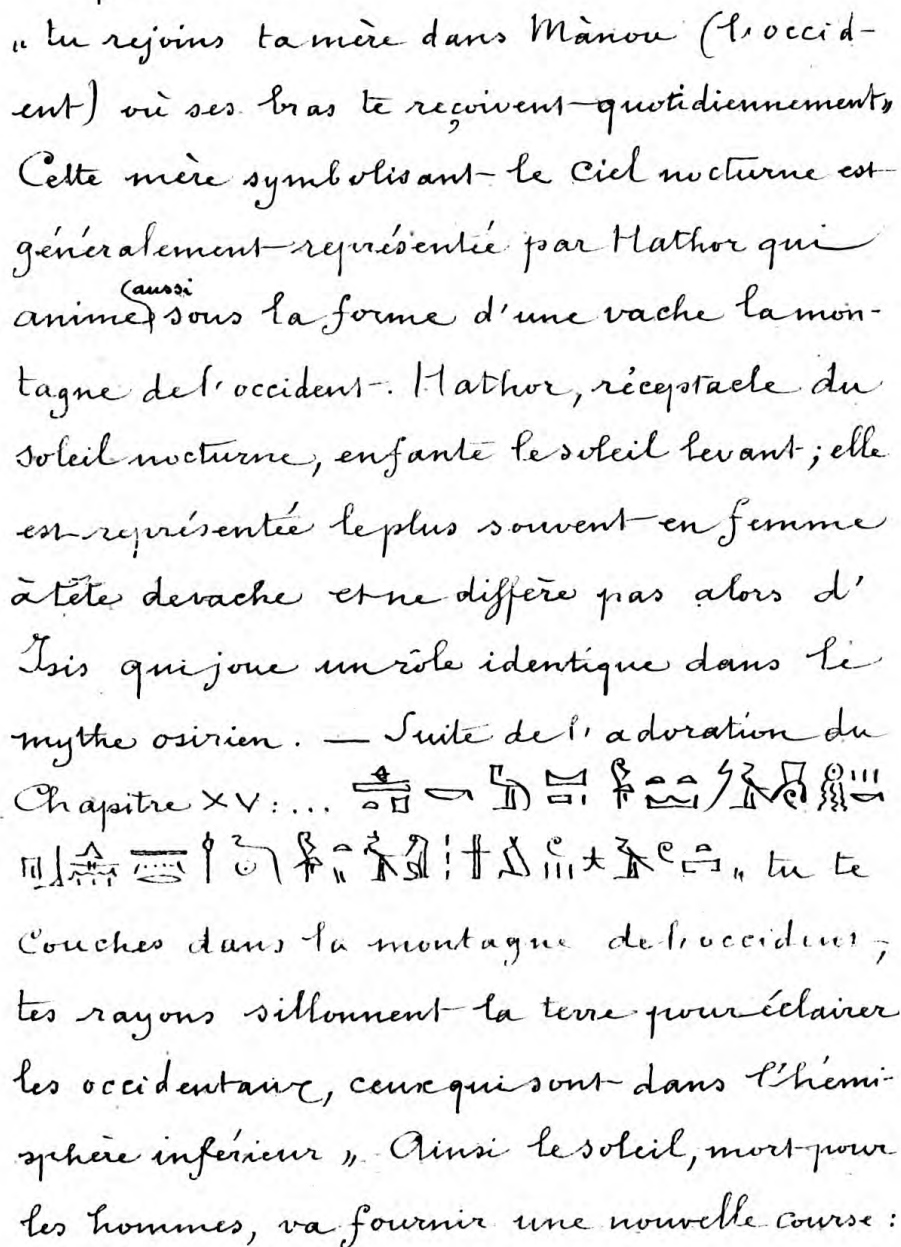 „ tu rejoins ta mère dans Mànou (l'occid-
ent) où ses bras te reçoivent quotidiennement „
Cette mère symbolisant le ciel nocturne est
généralement représentée par Hathor qui
anime (aussi) sous la forme d'une vache la mon-
tagne de l'occident. Hathor, réceptacle du
soleil nocturne, enfante le soleil levant ; elle
est représentée le plus souvent en femme
à tête de vache et ne diffère pas alors d'
Isis qui joue un rôle identique dans le
mythe osirien. — Suite de l'adoration du
Chapitre XV : ...
„ tu te
couches dans la montagne de l'occident,
tes rayons sillonnent la terre pour éclairer
les occidentaux, ceux qui sont dans l'hémi-
sphère inférieur „ Ainsi le soleil, mort pour
les hommes, va fournir une nouvelle course :